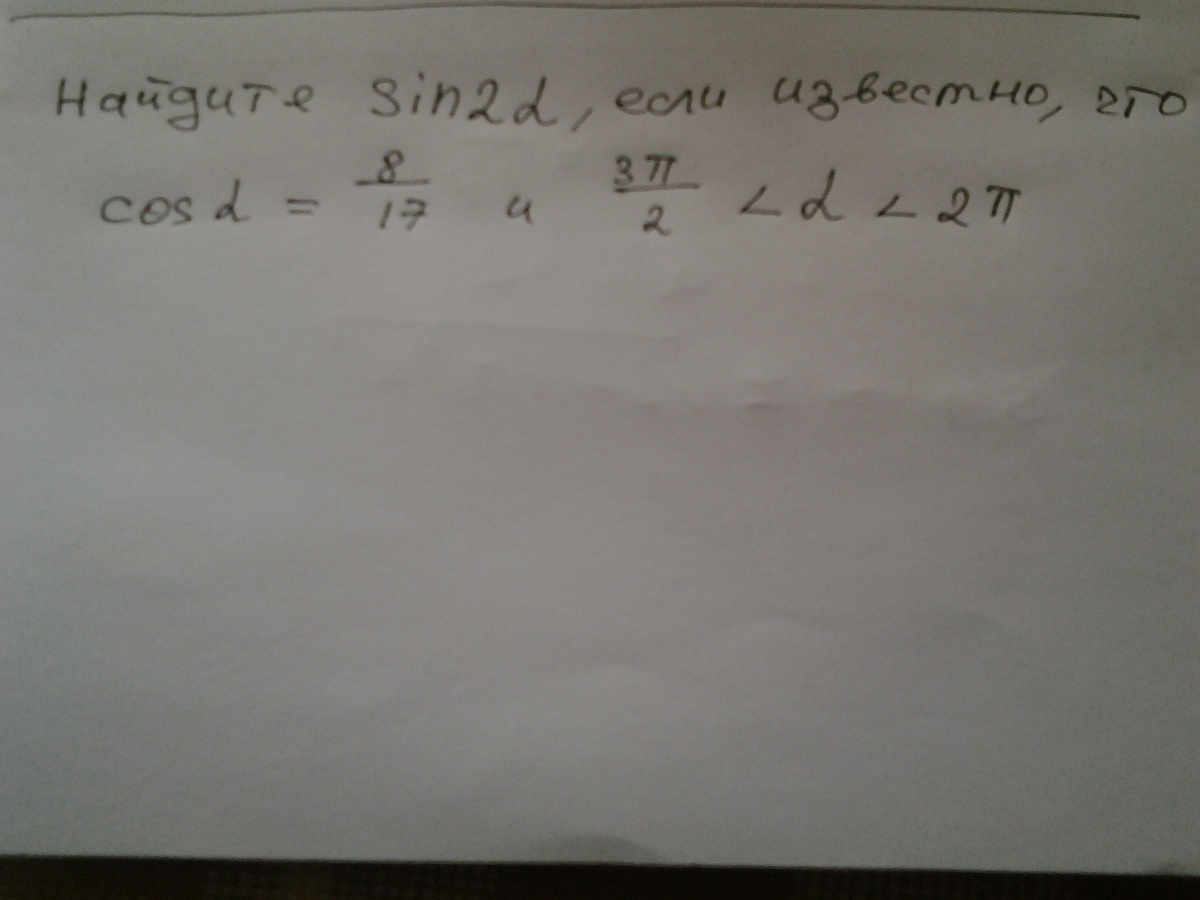 Найдите sin2α, если известно, что
cos α = 8/17 и 3π/2 < α < 2π